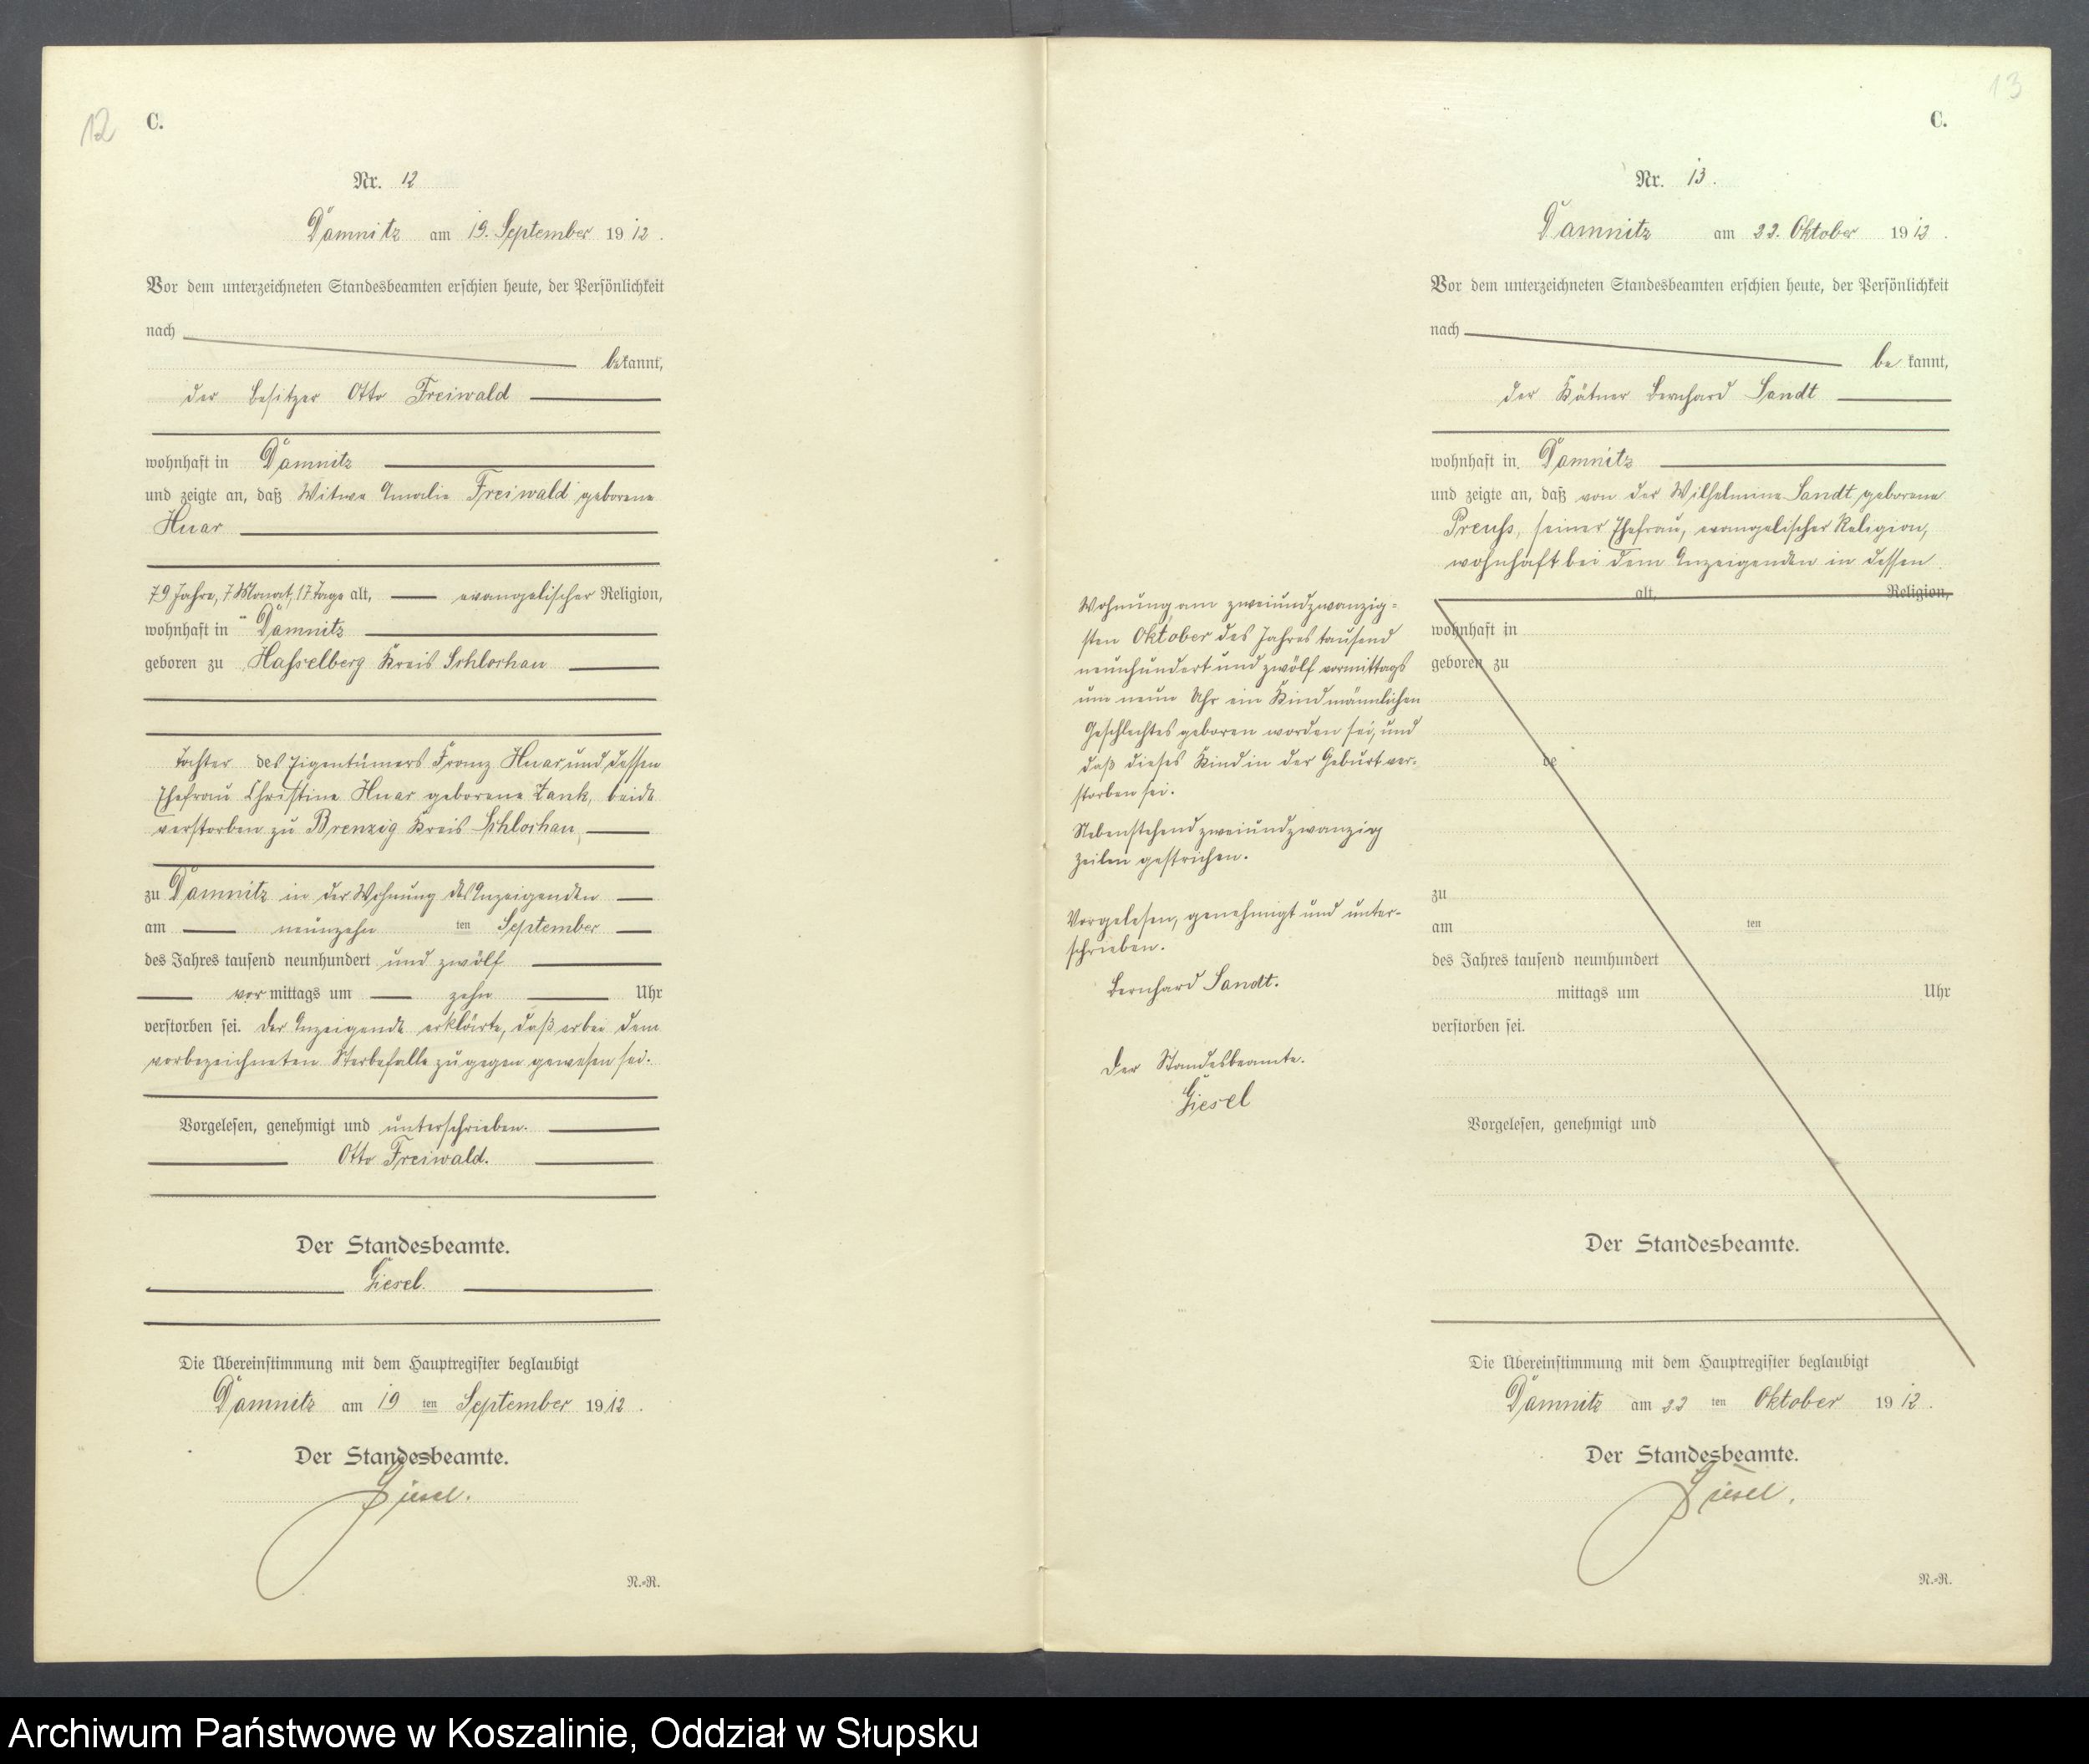 12
C.
Nr. 12
Damnitz am 19. September 1912.
Vor dem unterzeichneten Standesbeamten erschien heute, der Persönlichkeit
nach
bekannt,
der Besitzer Otto Freiwald
wohnhaft in Damnitz
und zeigte an, daß Witwe Amalie Freiwald geborene
Huar
79 Jahre, 7 Monat, 17 Tage alt, evangelischer Religion,
wohnhaft in Damnitz
geboren zu Hasselberg Kreis Schlochau
Tochter des Eigentümers Franz Huar und dessen
Ehefrau Christine Huar geborene Tank, beide
verstorben zu Brenzig Kreis Schlochau,
zu Damnitz in der Wohnung des Anzeigenden
am neunzehn ten September
des Jahres tausend neunhundert und zwölf
vor mittags um zehn Uhr
verstorben sei. Der Anzeigende erklärte, daß er bei dem
vorbezeichneten Sterbefalle zugegen gewesen sei.
Vorgelesen, genehmigt und unterschrieben.
Otto Freiwald.
Der Standesbeamte.
Giesel.
Die Übereinstimmung mit dem Hauptregister beglaubigt
Damnitz am 19 ten September 1912.
Der Standesbeamte.
Giesel.
N.=R.
13
C.
Nr. 13.
Damnitz am 22. Oktober 1912.
Vor dem unterzeichneten Standesbeamten erschien heute, der Persönlichkeit
nach
be kannt,
der Kätner Bernhard Sandt
wohnhaft in Damnitz
und zeigte an, daß von der Wilhelmine Sandt geborene
Preuß, seiner Ehefrau, evangelischer Religion,
wohnhaft bei dem Anzeigenden in dessen
Wohnung am zweiundzwanzig=
sten Oktober des Jahres tausend
neunhundert und zwölf vormittags
um neun Uhr ein Kind männlichen
Geschlechtes geboren worden sei, und
daß dieses Kind in der Geburt ver=
storben sei.
Nebenstehend zweiundzwanzig
Zeilen gestrichen.
Vorgelesen, genehmigt und unter=
schrieben.
Bernhard Sandt.
Der Standesbeamte.
Giesel
alt, Religion,
wohnhaft in
geboren zu
de
zu
am ten
des Jahres tausend neunhundert
mittags um Uhr
verstorben sei.
Vorgelesen, genehmigt und
Der Standesbeamte.
Die Übereinstimmung mit dem Hauptregister beglaubigt
Damnitz am 22 ten Oktober 1912.
Der Standesbeamte.
Giesel.
N.=R.
Archiwum Państwowe w Koszalinie, Oddział w Słupsku